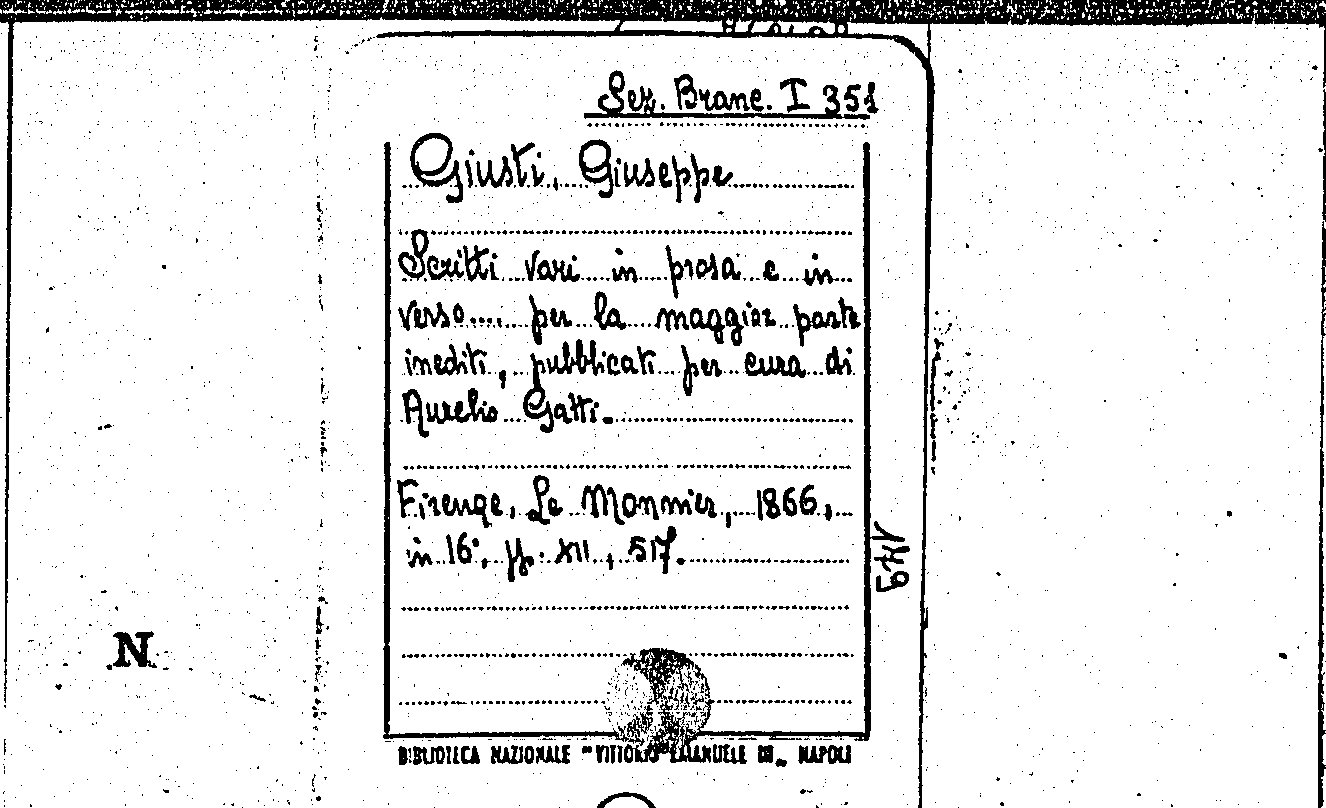 Sez. Branc. I 351
Giusti, Giuseppe
Scritti vari in prosa e in
verso.... per la maggior parte
inediti, pubblicati per cura di
Aurelio Gatti.
Firenze, Le Monnier, 1866,
in 16°, pp. XII, 517.
N
BIBLIOTECA NAZIONALE "VITTORIO EMANUELE III" NAPOLI